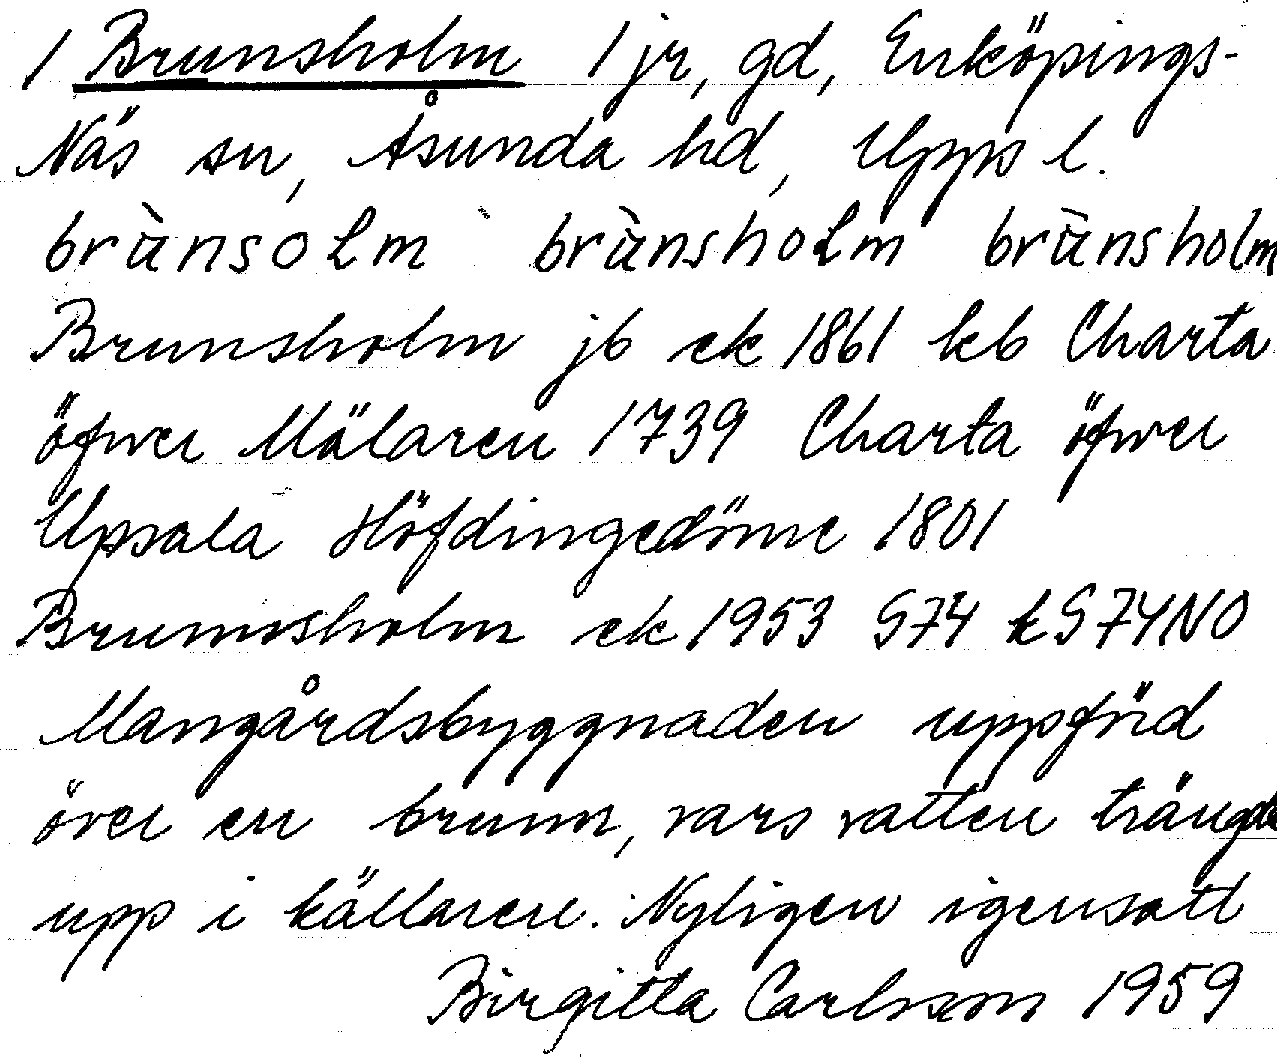 1 Brunsholm 1 jr, gd, Enköpings-
Näs sn, Åsunda hd, Upps l.
brùnsoLm brùnshoLm brùnsholm
Brunsholm jb ek 1861 kb Charta
öfwer Mälaren 1739 Charta öfwer
Upsala Höfdingedöme 1801
Brunnsholm ek 1953 G74 kG74NO
Mangårdsbyggnaden uppförd
över en brunn, vars vatten trängde
upp i källaren. Nyligen igensatt
Birgitta Carlsson 1959